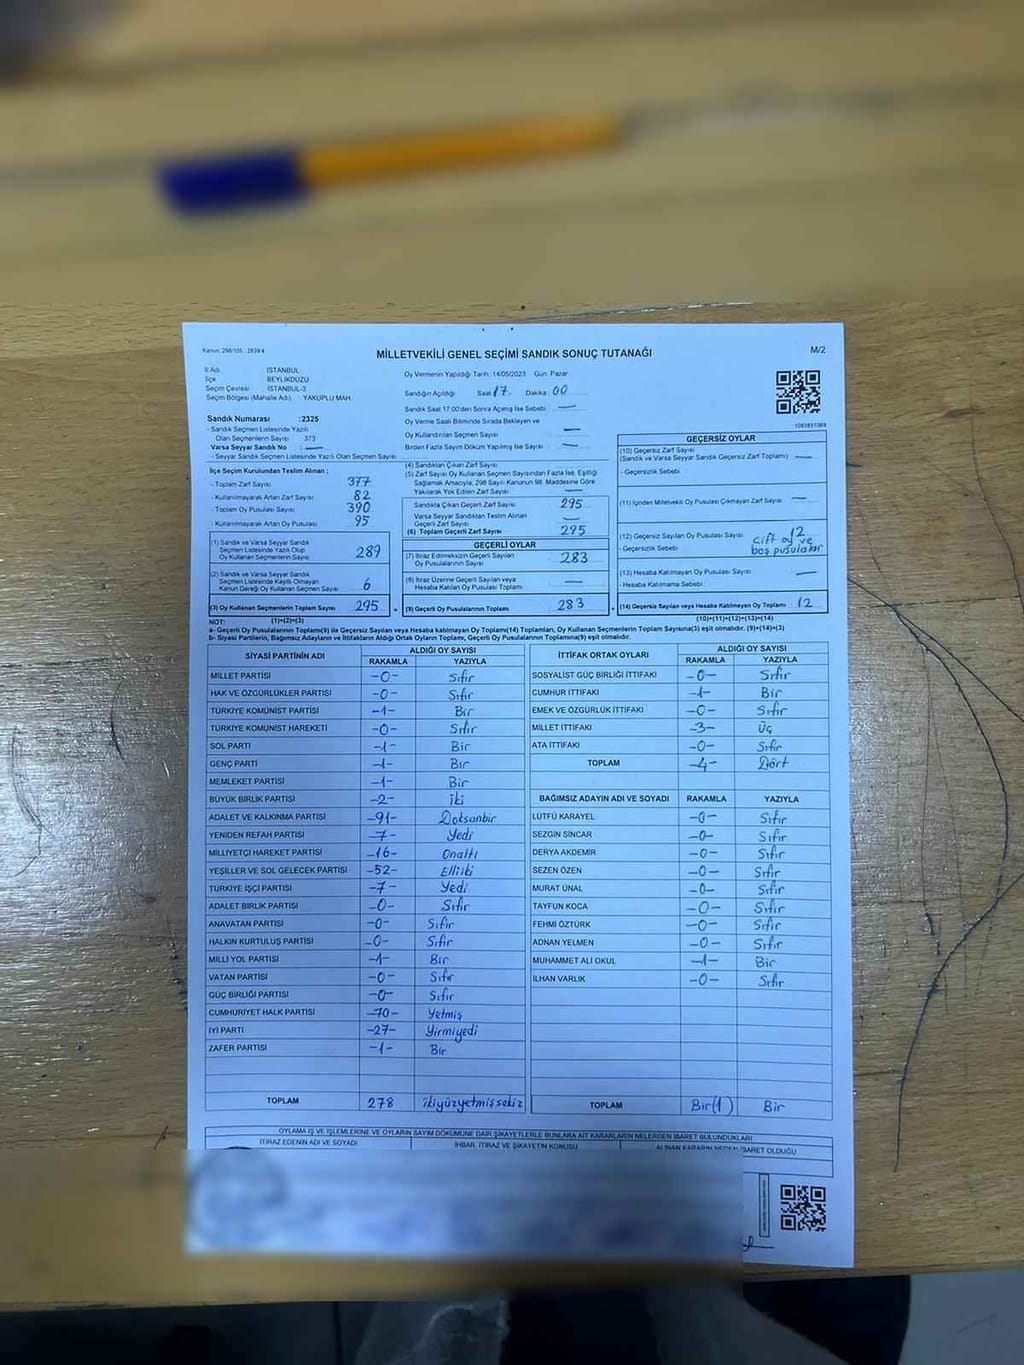 Kanun: 298/105 : 2839/4
MİLLETVEKİLİ GENEL SEÇİMİ SANDIK SONUÇ TUTANAĞI
M/2
İl Adı İSTANBUL
İlçe BEYLİKDÜZÜ
Seçim Çevresi İSTANBUL-3
Seçim Bölgesi (Mahalle Adı) YAKUPLU MAH.
Oy Vermenin Yapıldığı Tarih :14/05/2023 Gün: Pazar
Sandığın Açıldığı Saat 17. Dakika 00
Sandık Saat 17:00'den Sonra Açılmış İse Sebebi —
Oy Verme Saati Bitiminde Sırada Bekleyen ve
Oy Kullandırılan Seçmen Sayısı —
Birden Fazla Sayım Döküm Yapılmış İse Sayısı —
1083851069
Sandık Numarası :2325
- Sandık Seçmen Listesinde Yazılı
Olan Seçmenlerin Sayısı 373
Varsa Seyyar Sandık No —
- Seyyar Sandık Seçmen Listesinde Yazılı Olan Seçmen Sayısı
İlçe Seçim Kurulundan Teslim Alınan ;
- Toplam Zarf Sayısı 377
- Kullanılmayarak Artan Zarf Sayısı 82
- Toplam Oy Pusulası Sayısı 390
- Kullanılmayarak Artan Oy Pusulası 95
(1) Sandık ve Varsa Seyyar Sandık
Seçmen Listesinde Yazılı Olup
Oy Kullanan Seçmenlerin Sayısı 289
(2) Sandık ve Varsa Seyyar Sandık
Seçmen Listesinde Kayıtlı Olmayan
Kanun Gereği Oy Kullanan Seçmen Sayısı 6
(3) Oy Kullanan Seçmenlerin Toplam Sayısı 295 =
(1)+(2)=(3)
(4) Sandıktan Çıkan Zarf Sayısı
(5) Zarf Sayısı Oy Kullanan Seçmen Sayısından Fazla İse, Eşitliği
Sağlamak Amacıyla, 298 Sayılı Kanunun 98. Maddesine Göre
Yakılarak Yok Edilen Zarf Sayısı —
Sandıkta Çıkan Geçerli Zarf Sayısı 295
Varsa Seyyar Sandıktan Teslim Alınan
Geçerli Zarf Sayısı —
(6) Toplam Geçerli Zarf Sayısı 295
GEÇERLİ OYLAR
(7) İtiraz Edilmeksizin Geçerli Sayılan
Oy Pusulalarının Sayısı 283
(8) İtiraz Üzerine Geçerli Sayılan veya
Hesaba Katılan Oy Pusulası Toplamı —
(9) Geçerli Oy Pusulalarının Toplamı 283 +
GEÇERSİZ OYLAR
(10) Geçersiz Zarf Sayısı
(Sandık ve Varsa Seyyar Sandık Geçersiz Zarf Toplamı) —
- Geçersizlik Sebebi :
(11) İçinden Milletvekili Oy Pusulası Çıkmayan Zarf Sayısı —
(12) Geçersiz Sayılan Oy Pusulası Sayısı 12
- Geçersizlik Sebebi : çift oy ve
boş pusulalar
(13) Hesaba Katılmayan Oy Pusulası Sayısı —
- Hesaba Katılmama Sebebi :
(14) Geçersiz Sayılan veya Hesaba Katılmayan Oy Toplamı 12
(10)+(11)+(12)+(13)=(14)
NOT:
a- Geçerli Oy Pusulalarının Toplamı(9) ile Geçersiz Sayılan veya Hesaba katılmayan Oy Toplamı(14) Toplamları, Oy Kullanan Seçmenlerin Toplam Sayısına(3) eşit olmalıdır. (9)+(14)=(3)
b- Siyasi Partilerin, Bağımsız Adayların ve İttifakların Aldığı Ortak Oyların Toplamı, Geçerli Oy Pusulalarının Toplamına(9) eşit olmalıdır.
SİYASİ PARTİNİN ADI ALDIĞI OY SAYISI
RAKAMLA YAZIYLA
MİLLET PARTİSİ -0- Sıfır
HAK VE ÖZGÜRLÜKLER PARTİSİ -0- Sıfır
TÜRKİYE KOMÜNİST PARTİSİ -1- Bir
TÜRKİYE KOMÜNİST HAREKETİ -0- Sıfır
SOL PARTİ -1- Bir
GENÇ PARTİ -1- Bir
MEMLEKET PARTİSİ -1- Bir
BÜYÜK BİRLİK PARTİSİ -2- iki
ADALET VE KALKINMA PARTİSİ -91- Doksanbir
YENİDEN REFAH PARTİSİ -7- Yedi
MİLLİYETÇİ HAREKET PARTİSİ -16- Onaltı
YEŞİLLER VE SOL GELECEK PARTİSİ -52- Elliiki
TÜRKİYE İŞÇİ PARTİSİ -7- Yedi
ADALET BİRLİK PARTİSİ -0- Sıfır
ANAVATAN PARTİSİ -0- Sıfır
HALKIN KURTULUŞ PARTİSİ -0- Sıfır
MİLLİ YOL PARTİSİ -1- Bir
VATAN PARTİSİ -0- Sıfır
GÜÇ BİRLİĞİ PARTİSİ -0- Sıfır
CUMHURİYET HALK PARTİSİ -70- Yetmiş
İYİ PARTİ -27- Yirmiyedi
ZAFER PARTİSİ -1- Bir
TOPLAM 278 ikiyüzyetmişsekiz
İTTİFAK ORTAK OYLARI ALDIĞI OY SAYISI
RAKAMLA YAZIYLA
SOSYALİST GÜÇ BİRLİĞİ İTTİFAKI -0- Sıfır
CUMHUR İTTİFAKI -1- Bir
EMEK VE ÖZGÜRLÜK İTTİFAKI -0- Sıfır
MİLLET İTTİFAKI -3- Üç
ATA İTTİFAKI -0- Sıfır
TOPLAM -4- Dört
BAĞIMSIZ ADAYIN ADI VE SOYADI RAKAMLA YAZIYLA
LÜTFÜ KARAYEL -0- Sıfır
SEZGİN SİNCAR -0- Sıfır
DERYA AKDEMİR -0- Sıfır
SEZEN ÖZEN -0- Sıfır
MURAT ÜNAL -0- Sıfır
TAYFUN KOCA -0- Sıfır
FEHMİ ÖZTÜRK -0- Sıfır
ADNAN YELMEN -0- Sıfır
MUHAMMET ALİ OKUL -1- Bir
İLHAN VARLIK -0- Sıfır
TOPLAM Bir(1) Bir
OYLAMA İŞ VE İŞLEMLERİNE VE OYLARIN SAYIM DÖKÜMÜNE DAİR ŞİKAYETLERLE BUNLARA AİT KARARLARIN NELERDEN İBARET BULUNDUKLARI
İTİRAZ EDENİN ADI VE SOYADI İHBAR, İTİRAZ VE ŞİKAYETİN KONUSU ALINAN KARARIN NEDEN İBARET OLDUĞU